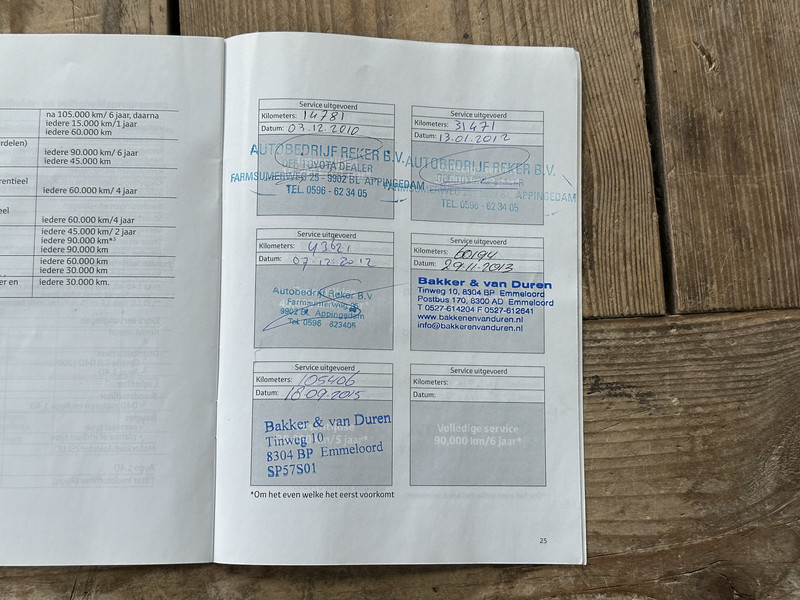 na 105.000 km/ 6 jaar, daarna
iedere 15.000 km/1 jaar
iedere 60.000 km
iedere 90.000 km/ 6 jaar
iedere 45.000 km
iedere 60.000 km/ 4 jaar
iedere 60.000 km/4 jaar
iedere 45.000 km/ 2 jaar
iedere 90.000 km*³
iedere 90.000 km
iedere 60.000 km
iedere 30.000 km
iedere 30.000 km.
Service uitgevoerd
Kilometers: 14781
Datum: 03.12.2010
AUTOBEDRIJF REKER B.V.
OFF. TOYOTA DEALER
FARMSUMERWEG 25 - 9902 BL APPINGEDAM
TEL. 0596 - 62 34 05
Service uitgevoerd
Kilometers: 31471
Datum: 13.01.2012
AUTOBEDRIJF REKER B.V.
APPINGEDAM
TEL. 0596 - 62 34 05
Service uitgevoerd
Kilometers: 43621
Datum: 07-12-2012
Autobedrijf Reker B.V.
Farmsumerweg 25
9902 BL Appingedam
Tel. 0596 623405
Service uitgevoerd
Kilometers: 60194
Datum: 29-11-2013
Bakker & van Duren
Tinweg 10, 8304 BP Emmeloord
Postbus 170, 8300 AD Emmeloord
T 0527-614204 F 0527-612641
www.bakkerenvanduren.nl
info@bakkerenvanduren.nl
Service uitgevoerd
Kilometers: 105406
Datum: 18.09.2015
Bakker & van Duren
Tinweg 10
8304 BP Emmeloord
SP57S01
Service uitgevoerd
Kilometers:
Datum:
Volledige service
90,000 km/6 jaar*
*Om het even welke het eerst voorkomt
25